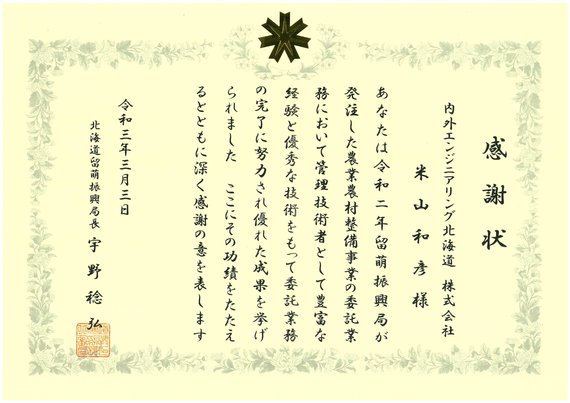 感謝状
内外エンジニアリング北海道 株式会社
米山和彦様
あなたは令和二年留萌振興局が
発注した農業農村整備事業の委託業
務において管理技術者として豊富な
経験と優秀な技術をもって委託業務
の完了に努力され優れた成果を挙げ
られました ここにその功績をたたえ
るとともに深く感謝の意を表します
令和三年三月三日
北海道留萌振興局長 宇野稔弘